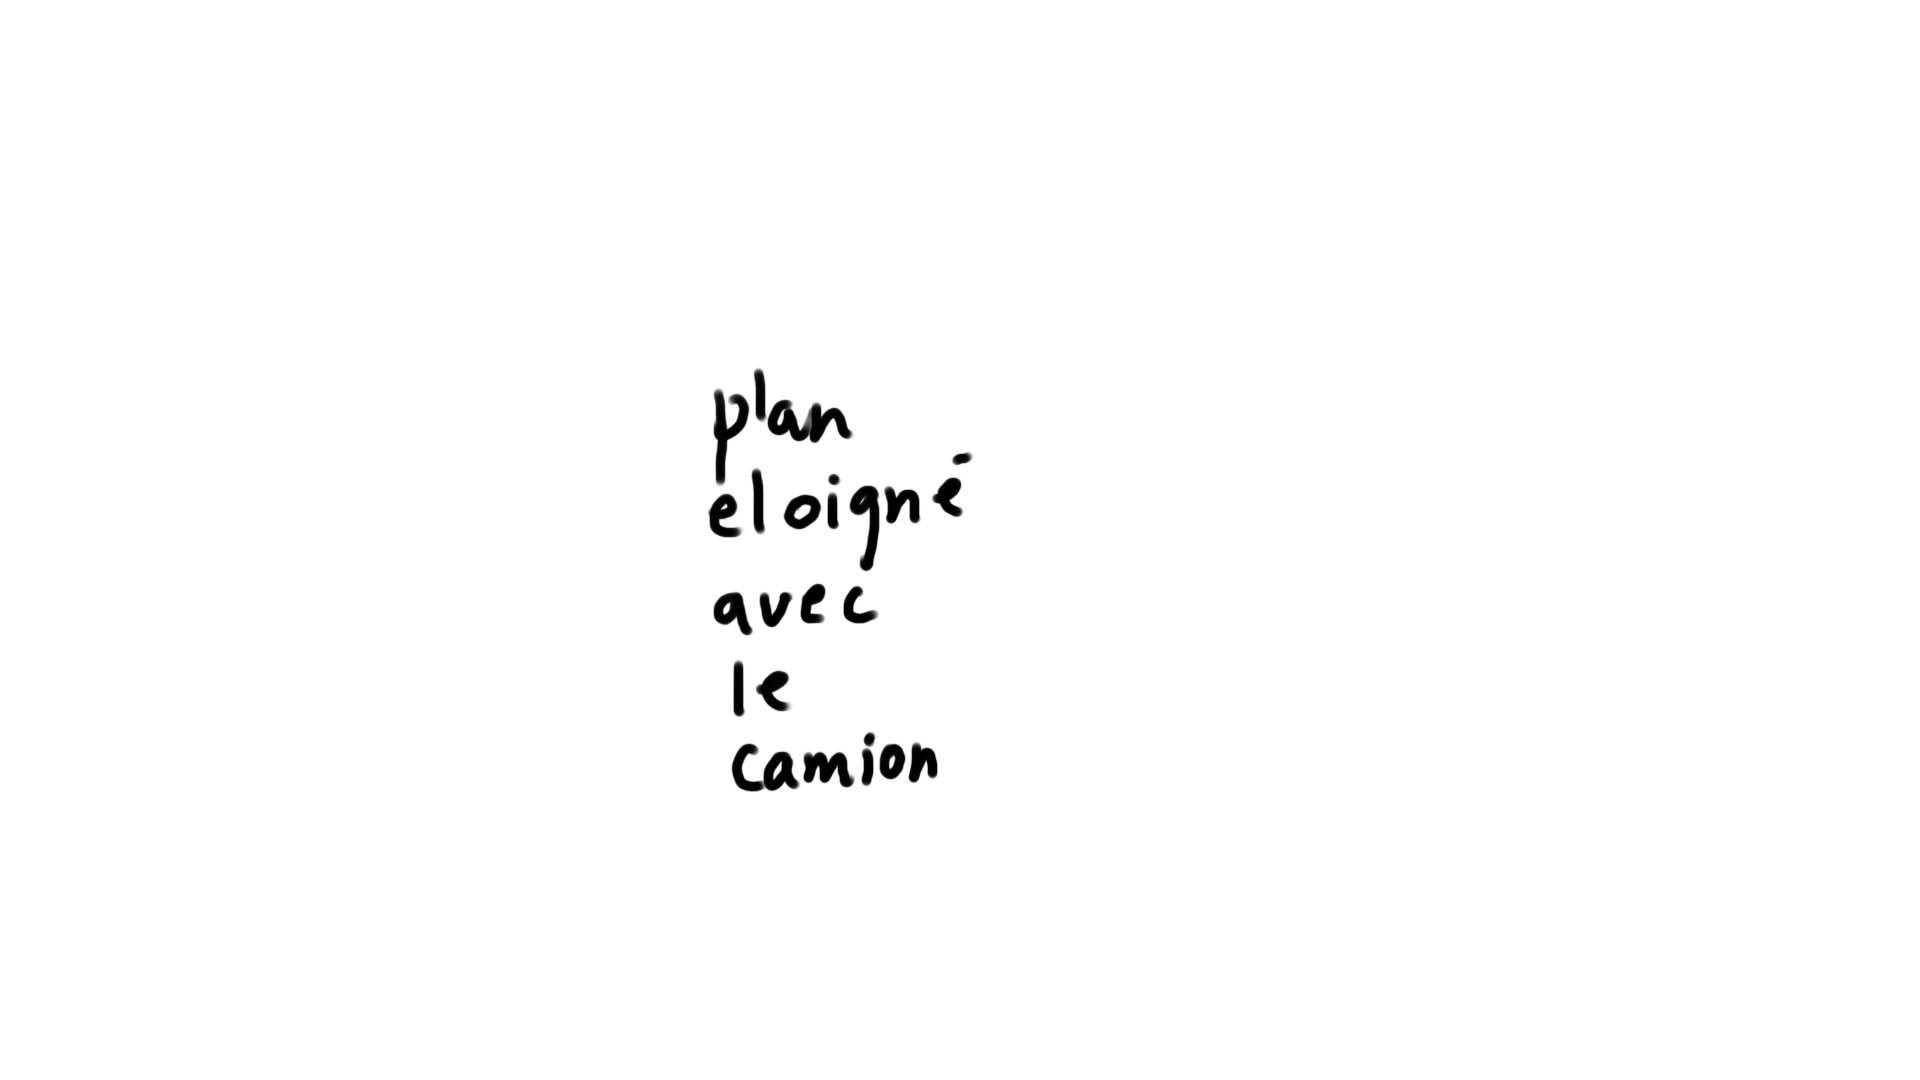 plan
eloigné
avec
le
camion